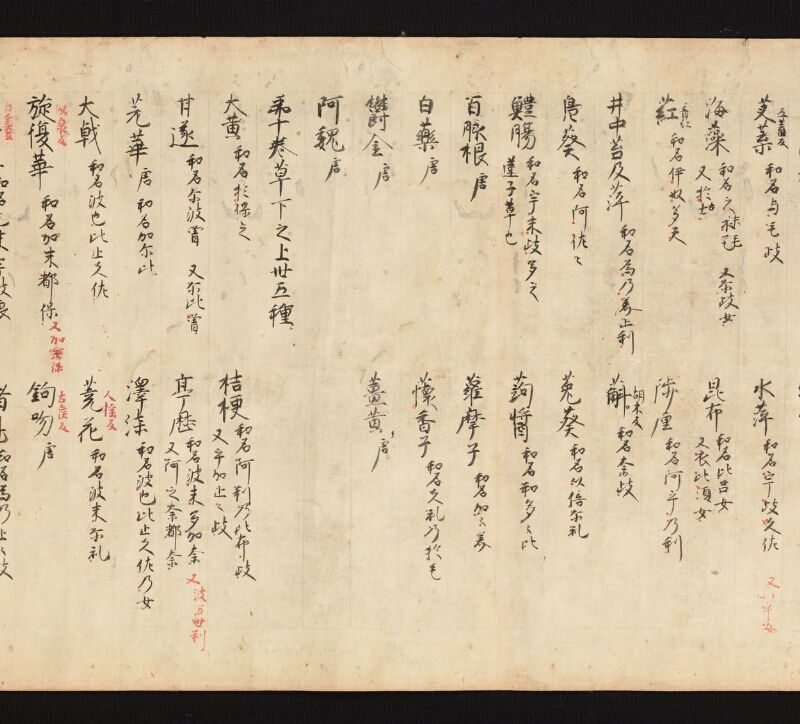 艾葉 和名与毛岐
水萍 和名宇岐久佐
海藻 和名之末毛 又尓岐女
昆布 和名比呂女 又衣比須女
葒 和名伊奴多天
陟厘 和名阿乎乃利
井中苔及萍 和名為乃美止利
蔛 胡木反 和名奈岐
鳧葵 和名阿佐々
菟葵 和名以倍尓礼
鱧膓 和名宇末岐多之 蓮子草也
蒟醬 和名和多々比
百脉根 唐
蘿摩子 和名加々美
白薬 唐
蘹香子 和名久礼乃於毛
欝金 唐
薑黄 唐
阿魏 唐
第十巻草下之上卅五種
大黄 和名於保之
桔梗 和名阿利乃比布岐 又乎加止々岐
甘遂 和名尓波曽 又尓比曽
亭歴 和名波末多加奈 又阿之奈都奈 又波万世利
芫華 唐 和名加尓比
澤漆 和名波也比止久佐乃女
大戟 和名波也比止久佐
蕘花 人搖反 和名波末尓礼
旋復華 和名加末都保
鉤吻 古侯反 唐